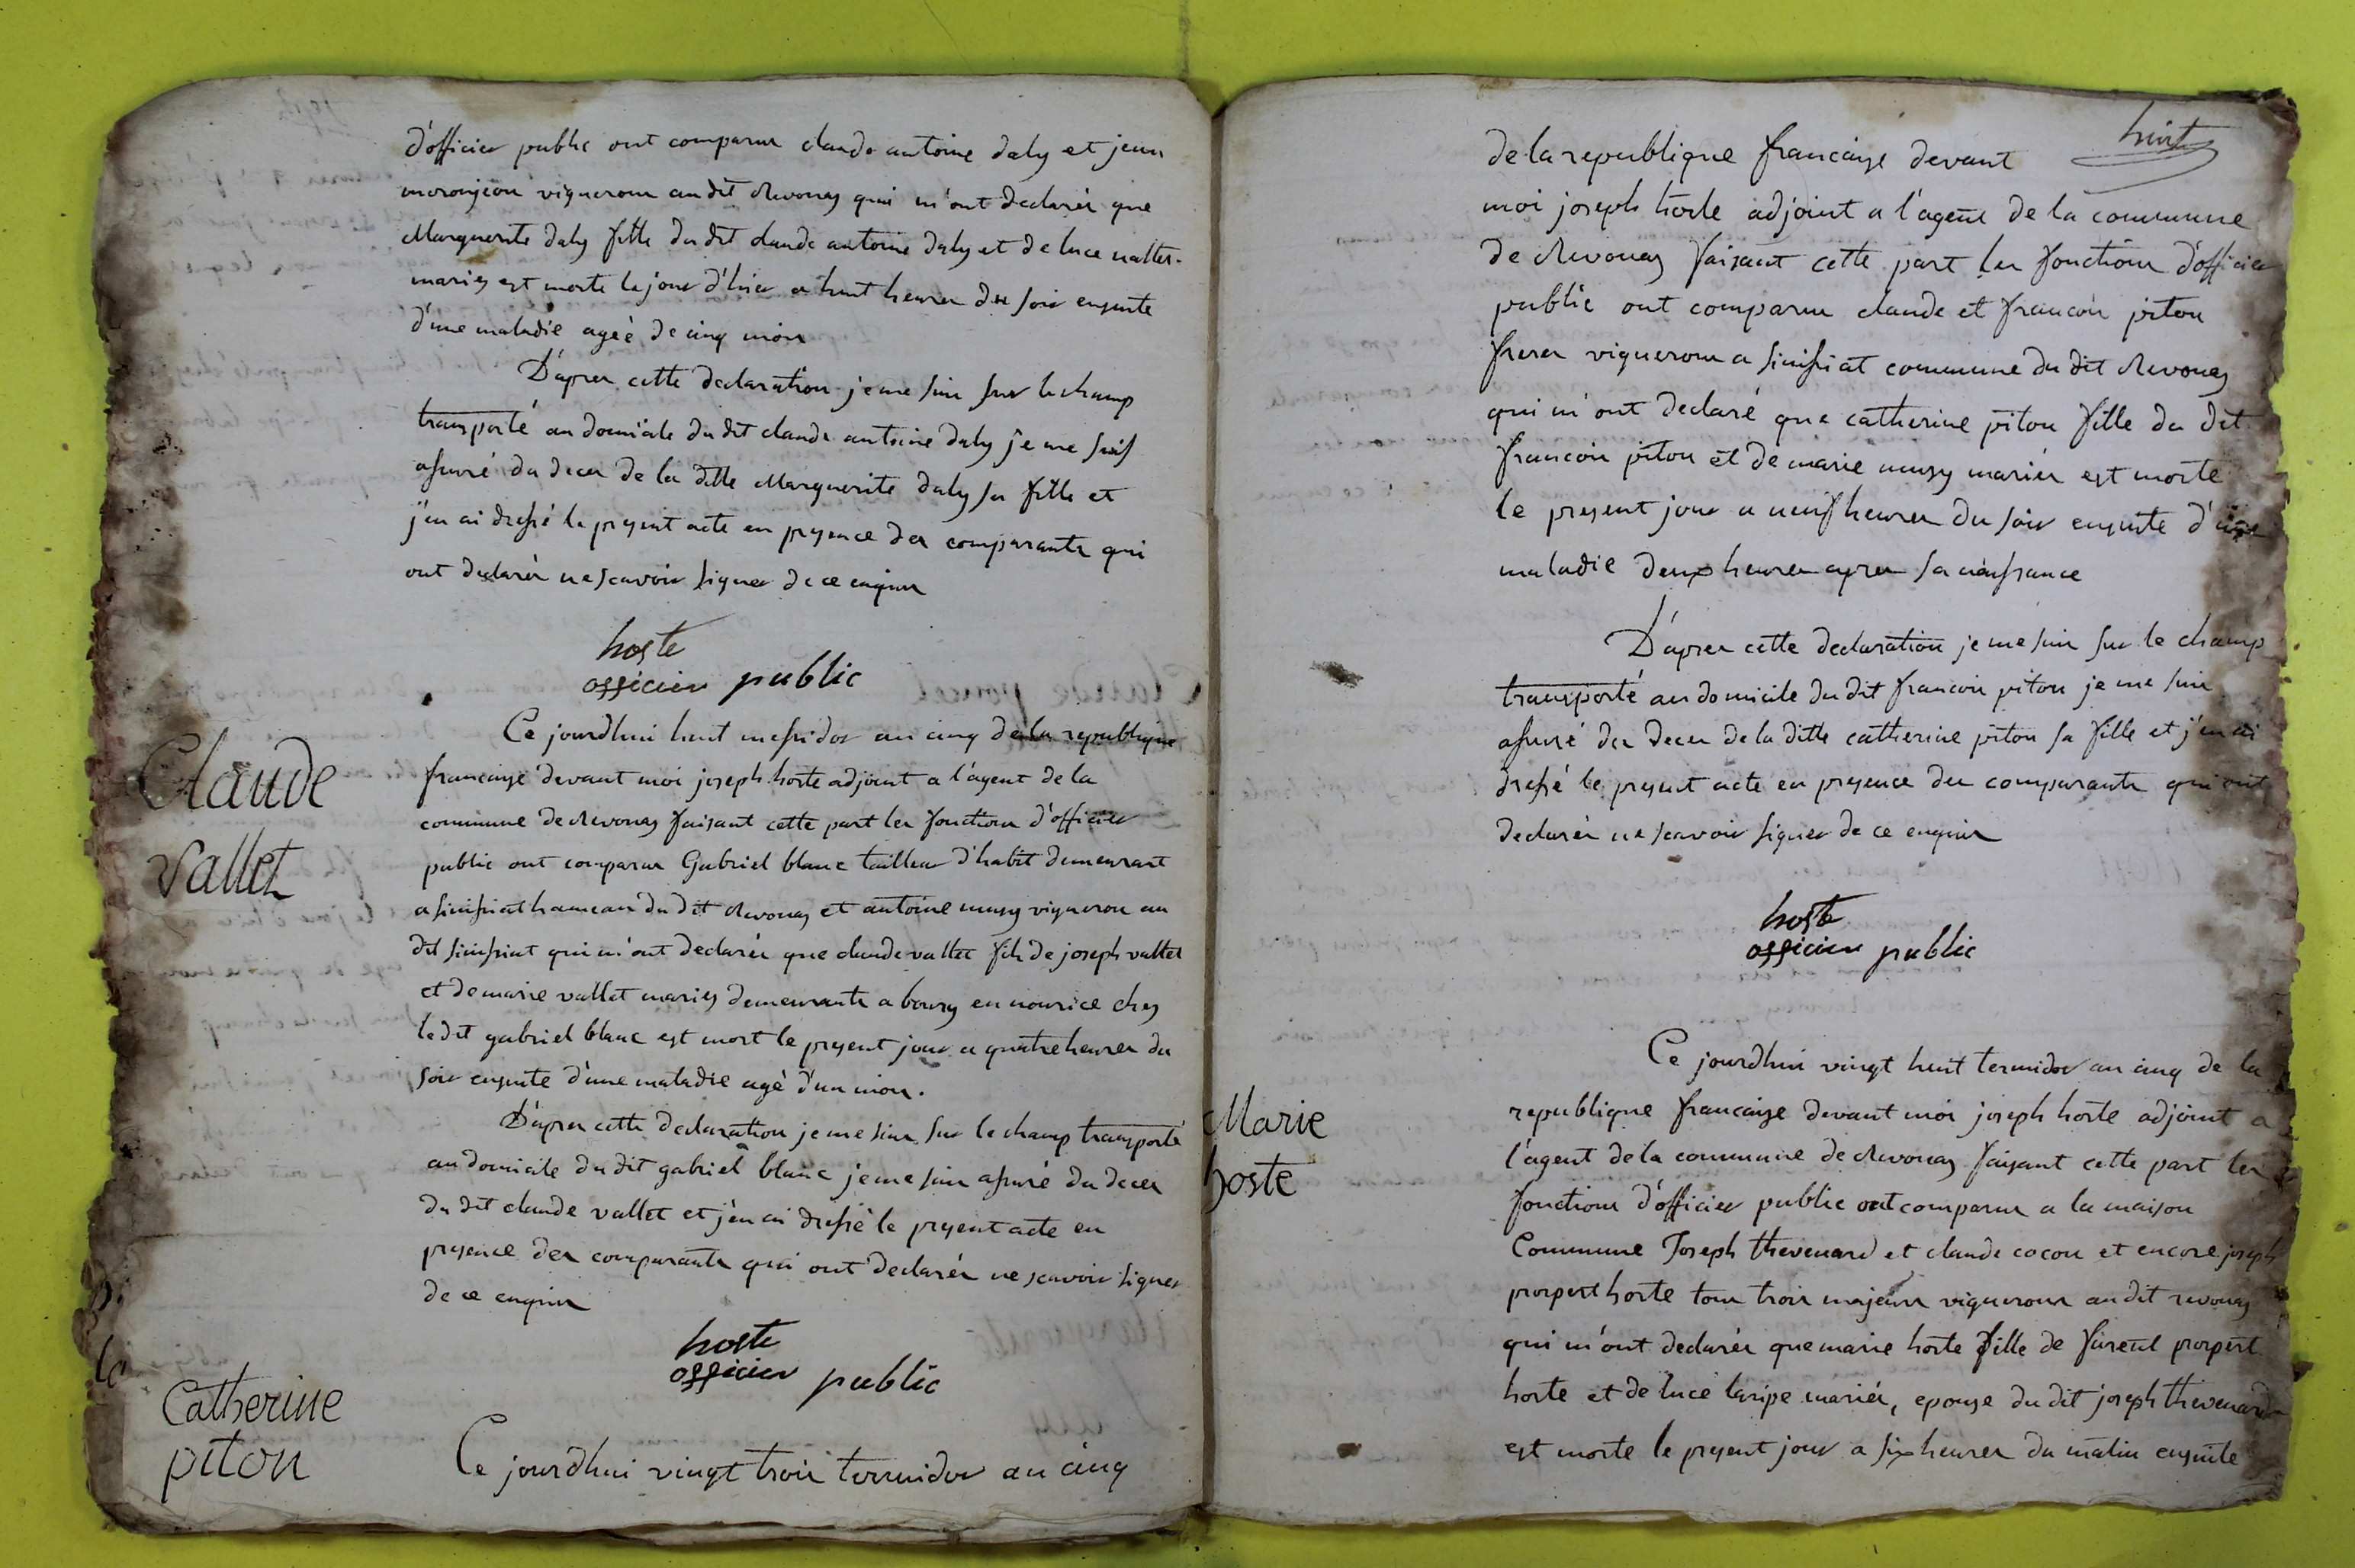 d'officier public ont comparu claude antoine daly et jean
vigneron au dit Revonas qui m'ont declarés que
Marguerite daly fille du dit claude antoine daly et de luce vallet
mariés est morte le jour d'hier a huit heures du soir ensuite
d'une maladie ageé de cinq mois
D'apres cette declaration je me suis sur le champ
transporté au domicile du dit claude antoine daly je me suis
assuré du deces de la ditte Marguerite daly sa fille et
j'en ai dressé le present acte en presence des comparants qui
ont declarés ne scavoir signer de ce enquis
hoste
officier public
Claude
vallet
Ce jourdhui huit messidor an cinq de la republique
francaise devant moi joseph hoste adjoint a l'agent de la
commune de Revonas faisant cette part les fonctions d'officier
public ont comparu Gabriel blanc tailleur d'habit demeurant
a simsiat hameau du dit Revonas et antoine musy vigneron au
dit simsiat qui m'ont declarés que claude vallet fils de joseph vallet
et de marie vallet mariés demeurants a bourg en nourice chés
le dit gabriel blanc est mort le present jour a quatre heures du
soir ensuite d'une maladie agé d'un mois.
D'apres cette declaration je me suis sur le champ transporté
au domicile du dit gabriel blanc je me suis assuré du deces
du dit claude vallet et j'en ai dressé le present acte en
presence des comparants qui ont declarés ne scavoir signer
de ce enquis
hoste
officier public
Catherine
piton
Ce jourdhui vingt trois termidor an cinq
huit
de la republique francaise devant
moi joseph hoste adjoint a l'agent de la commune
de Revonas faisant cette part les fonctions d'officier
public ont comparu claude et francois piton
freres vignerons a simsiat commune du dit Revonas
qui m'ont declaré que catherine piton fille du dit
francois piton et de marie musy mariés est morte
le present jour a neuf heures du soir ensuite d'une
maladie deux heures apres sa naissance
D'apres cette declaration je me suis sur le champ
transporté au domicile du dit francois piton je me suis
assuré du deces de la ditte catherine piton sa fille et j'en ai
dressé le present acte en presence des comparants qui ont
declarés ne scavoir signer de ce enquis
hoste
officier public
Marie
hoste
Ce jourdhui vingt huit termidor an cinq de la
republique francaise devant moi joseph hoste adjoint a
l'agent de la commune de Revonas faisant cette part les
fonctions d'officier public ont comparu a la maison
Commune Joseph thevenard et claude cocon et encore joseph
prospert hoste tous trois majeurs vignerons au dit revonas
qui m'ont declarés que marie hoste fille de prospert
hoste et de luce laripe mariés, epouse du dit joseph thevenard
est morte le present jour a six heures du matin ensuite